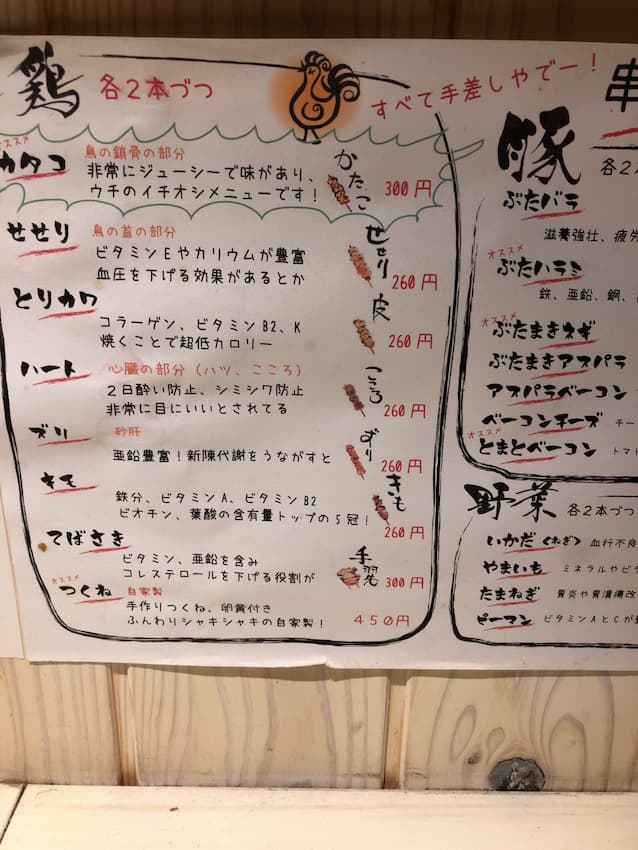 鶏 各2本づつ
すべて手差しやでー!
オススメ
カタコ 鳥の鎖骨の部分
非常にジューシーで味があり、
ウチのイチオシメニューです!
かたこ
300円
せせり 鳥の首の部分
ビタミンEやカリウムが豊富
血圧を下げる効果があるとか
せせり
260円
とりカワ
コラーゲン、ビタミンB2、K
焼くことで超低カロリー
皮
260円
ハート 心臓の部分(ハツ、こころ)
2日酔い防止、シミシワ防止
非常に目にいいとされてる
こころ
260円
ズリ 砂肝
亜鉛豊富!新陳代謝をうながすと
ずり
260円
キモ
鉄分、ビタミンA、ビタミンB2
ビオチン、葉酸の含有量トップの5冠!
きも
260円
てばさき
ビタミン、亜鉛を含み
コレステロールを下げる役割が
手羽
300円
オススメ
つくね 自家製
手作りつくね、卵黄付き
ふんわりシャキシャキの自家製!
450円
串
豚 各2
ぶたバラ
滋養強壮、疲労
オススメ
ぶたハラミ
鉄、亜鉛、銅、
オススメ
ぶたまきネギ
ぶたまきアスパラ
アスパラベーコン
ベーコンチーズ チー
オススメ
とまとベーコン トマト
野菜 各2本づつ
いかだ<ねぎ> 血行不良
やまいも ミネラルやビタ
たまねぎ 胃炎や胃潰瘍改
ピーマン ビタミンAとCが豊